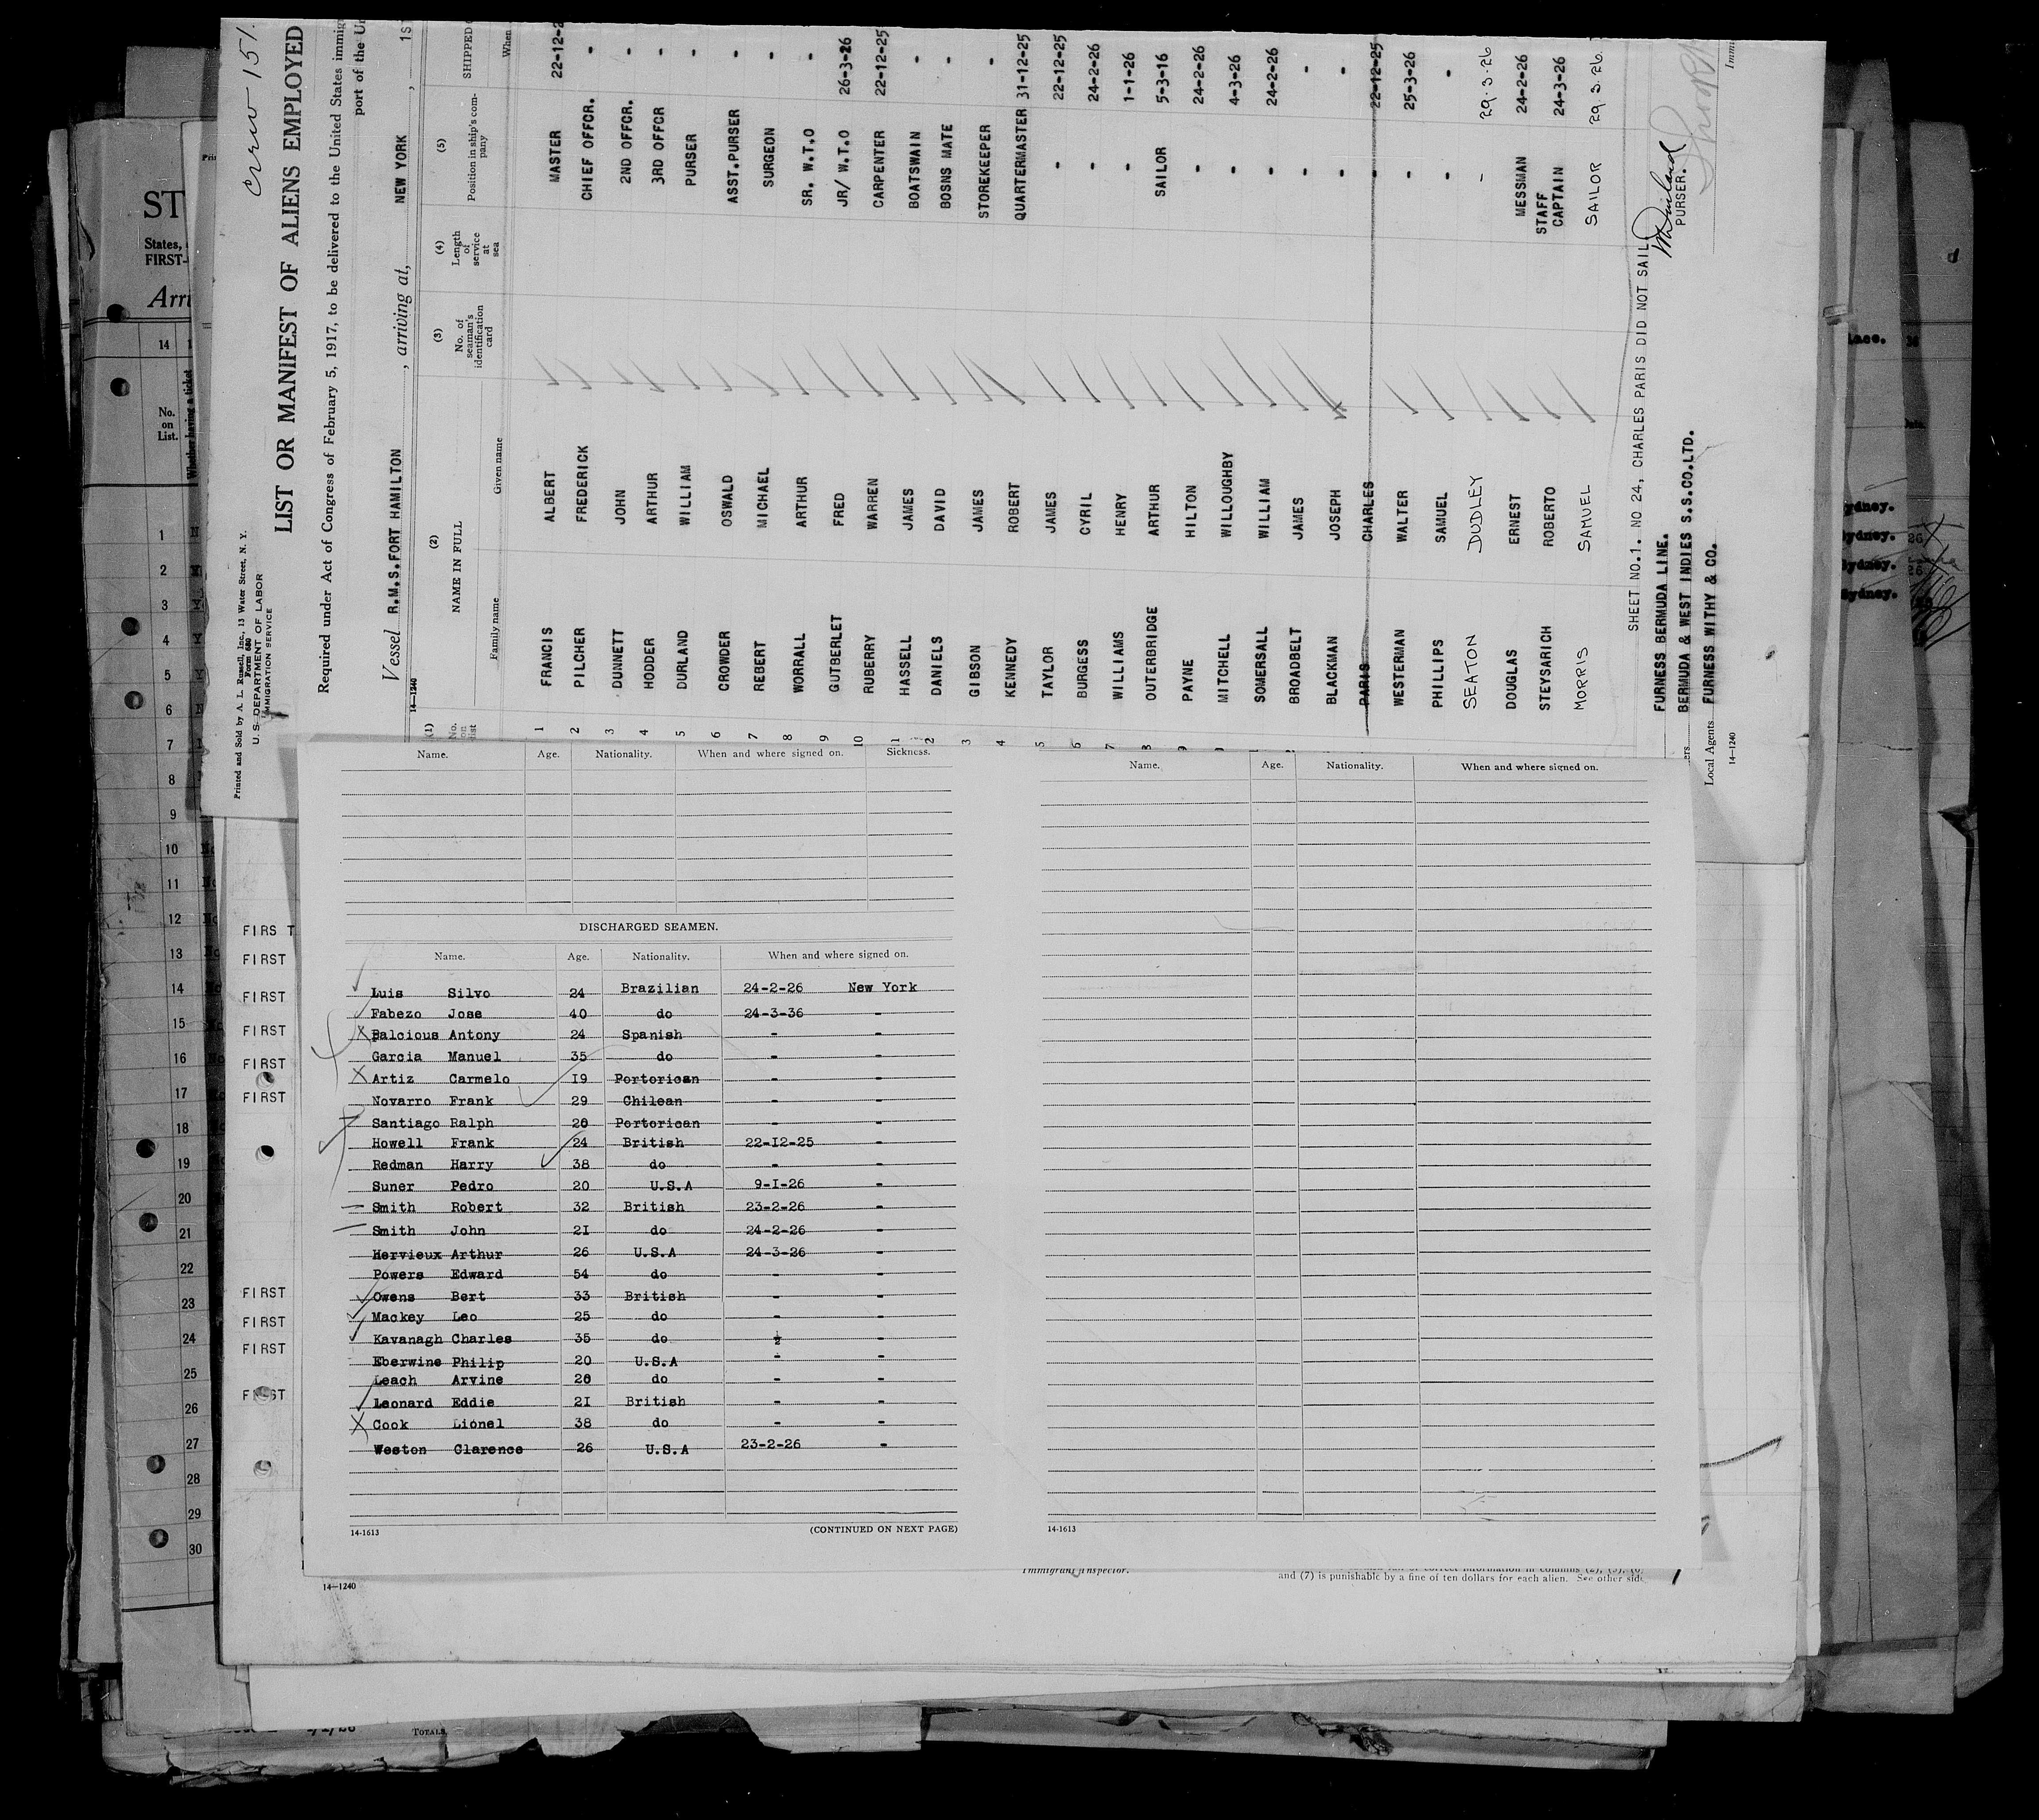 Crew 151.
Printed and Sold by A. L. Russell, Inc., 13 Water Street, N. Y.
Form 680
U. S. DEPARTMENT OF LABOR
IMMIGRATION SERVICE
LIST OR MANIFEST OF ALIENS EMPLOYED
Required under Act of Congress of February 5, 1917, to be delivered to the United States
port of the
Vessel R.M.S.FORT HAMILTON , arriving at, NEW YORK , 1ST
14-1240
(1) No. on list (2) NAME IN FULL (3) No. of seaman's identification card (4) Length of service at sea (5) Position in ship's company SHIPPED
Family name Given name When
1 FRANCIS ALBERT MASTER 22-12-2
2 PILCHER FREDERICK CHIEF OFFCR. -
3 DUNNETT JOHN 2ND OFFCR. -
4 HODDER ARTHUR 3RD OFFCR -
5 DURLAND WILLIAM PURSER -
6 CROWDER OSWALD ASST.PURSER -
7 REBERT MICHAEL SURGEON -
8 WORRALL ARTHUR SR. W.T.O -
9 GUTBERLET FRED JR/ W.T.O 26-3-26
10 RUBERRY WARREN CARPENTER 22-12-25
1 HASSELL JAMES BOATSWAIN -
2 DANIELS DAVID BOSNS MATE -
3 GIBSON JAMES STOREKEEPER -
4 KENNEDY ROBERT QUARTERMASTER 31-12-25
5 TAYLOR JAMES - 22-12-25
6 BURGESS CYRIL - 24-2-26
7 WILLIAMS HENRY - 1-1-26
8 OUTERBRIDGE ARTHUR SAILOR 5-3-16
9 PAYNE HILTON - 24-2-26
MITCHELL WILLOUGHBY - 4-3-26
SOMERSALL WILLIAM - 24-2-26
BROADBELT JAMES - -
BLACKMAN JOSEPH - -
PARIS CHARLES - 22-12-25
WESTERMAN WALTER - 25-3-26
PHILLIPS SAMUEL - -
SEATON DUDLEY - 29.3.26
DOUGLAS ERNEST MESSMAN 24-2-26
STEYSARICH ROBERTO STAFF CAPTAIN 24-3-26
MORRIS SAMUEL SAILOR 29.3.26.
SHEET NO.1. NO 24, CHARLES PARIS DID NOT SAIL
PURSER.
FURNESS BERMUDA LINE.
BERMUDA & WEST INDIES S.S.CO.LTD.
Local Agents FURNESS WITHY & CO.
14-1240
ST
States,
FIRST-
14
No. on List.
Whether having a ticket
1
2
3
4
5
6
7
8
9
10
11
12
13
14
15
16
17
18
19
20
21
22
23
24
25
26
27
28
29
30
FIRST
FIRST
FIRST
FIRST
FIRST
FIRST
FIRST
FIRST
FIRST
Name. Age. Nationality. When and where signed on. Sickness.
DISCHARGED SEAMEN.
Name. Age. Nationality. When and where signed on.
Luis Silvo 24 Brazilian 24-2-26 New York
Fabezo Jose 40 do 24-3-36 -
Balcious Antony 24 Spanish - -
Garcia Manuel 35 do - -
Artiz Carmelo 19 Portorican - -
Novarro Frank 29 Chilean - -
Santiago Ralph 20 Portorican - -
Howell Frank 24 British 22-12-25 -
Redman Harry 38 do - -
Suner Pedro 20 U.S.A 9-1-26 -
Smith Robert 32 British 23-2-26 -
Smith John 21 do 24-2-26 -
Hervieux Arthur 26 U.S.A 24-3-26 -
Powers Edward 54 do - -
Owens Bert 33 British - -
Mackey Leo 25 do - -
Kavanagh Charles 35 do - -
Eberwine Philip 20 U.S.A - -
Leach Arvine 20 do - -
Leonard Eddie 21 British - -
Cook Lionel 38 do - -
Weston Clarence 26 U.S.A 23-2-26 -
14-1613 (CONTINUED ON NEXT PAGE)
Name. Age. Nationality. When and where signed on.
14-1613
14-1240
Immigrant Inspector.
and (7) is punishable by a fine of ten dollars for each alien. See other side
TOTALS.
Sydney.
Sydney.
Sydney.